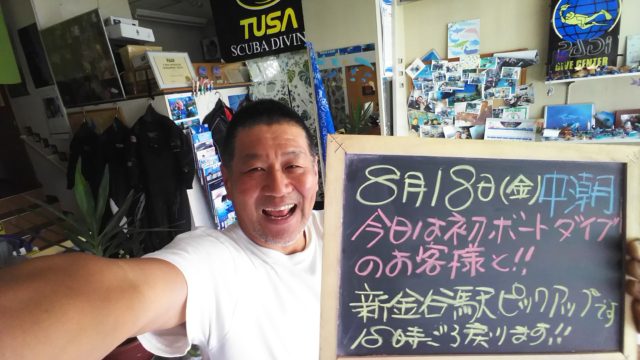 TUSA
SCUBA DIVING
PADI
DIVE CENTER
8月18日(金)中潮
今日は初ボートダイブ
のお客様と!!
新金谷駅ピックアップです
18時ごろ戻ります!!